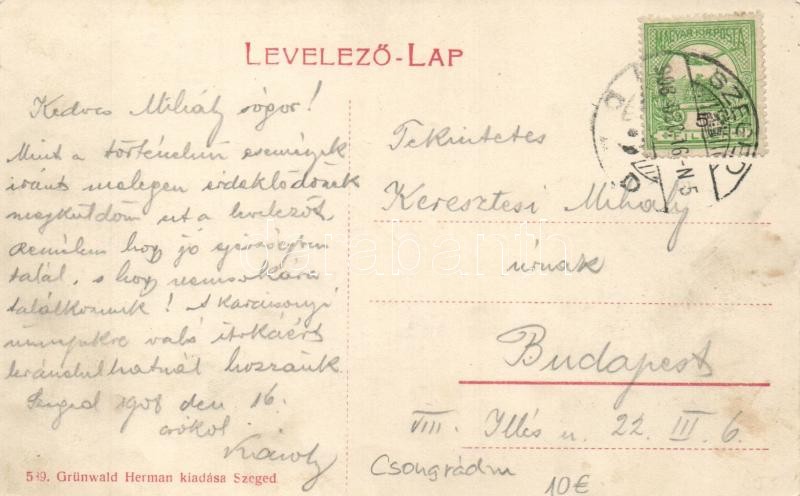 LEVELEZŐ-LAP
MAGYAR KIR. POSTA
SZEGED
Kedves Mihály sógor!
Mint a történelmi események
iránt melegen érdeklődőnek
megküldöm ezt a levelezőt.
Remélem hogy jó
talál, s hogy nemsokára
találkozunk! A karácsonyi
ünnepekre való itókáért
kirándulhatnál hozzánk
Szeged 1908 dec 16.
csókol
Károly
Tekintetes
Keresztesi Mihály
úrnak
Budapest
VIII. Illés u. 22. III. 6.
Csongrád m
10€
539. Grünwald Herman kiadása Szeged
darabanth